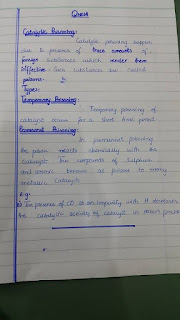 Qno4
Catalytic Poisoning:
Catalytic poisoning happen
due to presence of trace amounts of
foreign substances which render them
ineffective. Such substances are called
poisons.
Types:
Temporary Poisoning:
Temporary poisoning of
catalyst occurs for a short time period
Permanent Poisoning:
In permanent poisoning
the poison reacts chemically with the
catalyst. The compounds of sulphur
and arsenic behave as poison to many
metallic Catalyst.
e.g:
The presence of CO as an impurity with H decreases
the catalytic activity of catalyst in Haber's process